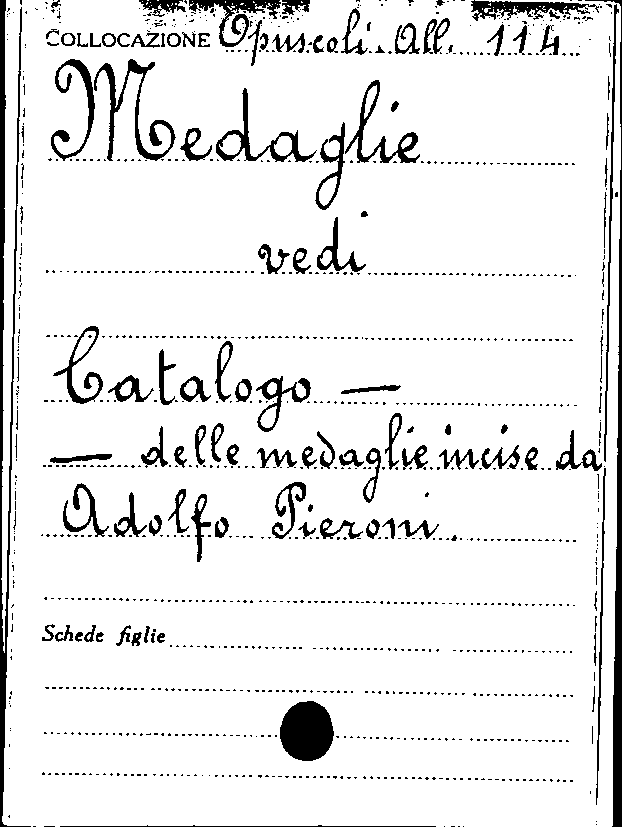 COLLOCAZIONE Opuscoli. All. 114
Medaglie
vedi
Catalogo —
— delle medaglie incise da
Adolfo Pieroni.
Schede figlie